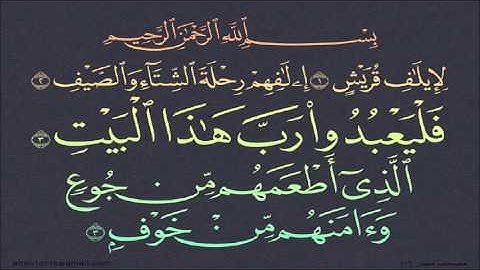 بِسْمِ ٱللَّهِ ٱلرَّحْمَٰنِ ٱلرَّحِيمِ
لِإِيلَٰفِ قُرَيْشٍ ١ إِۦلَٰفِهِمْ رِحْلَةَ ٱلشِّتَآءِ وَٱلصَّيْفِ ٢
فَلْيَعْبُدُوا۟ رَبَّ هَٰذَا ٱلْبَيْتِ ٣
ٱلَّذِىٓ أَطْعَمَهُم مِّن جُوعٍ
وَءَامَنَهُم مِّنْ خَوْفٍۭ ٣